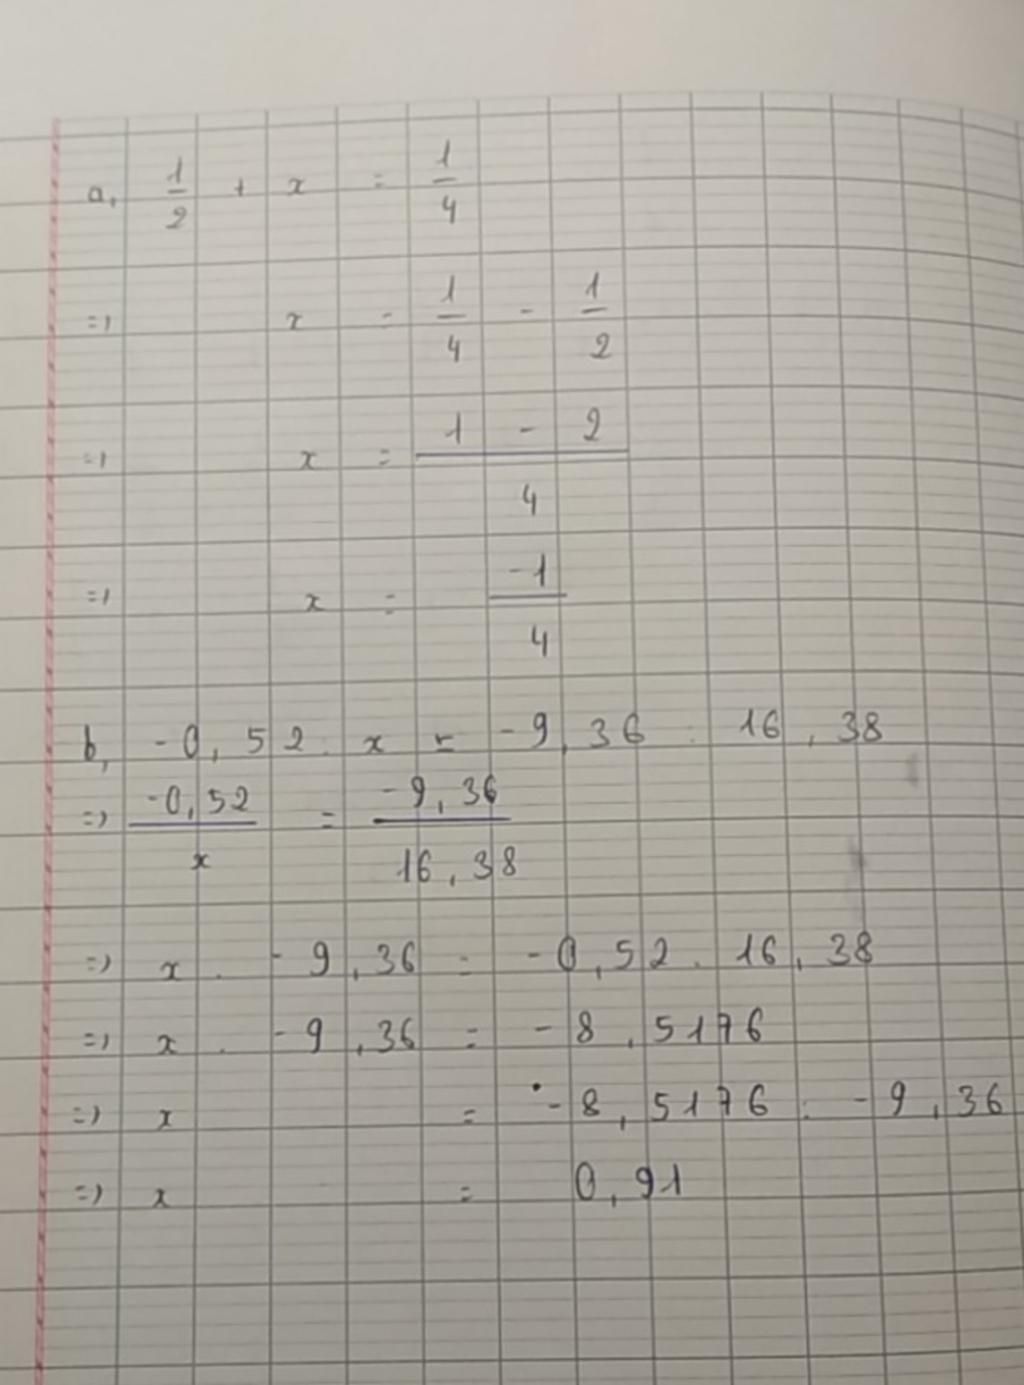 a, 1/2 + x = 1/4
=> x = 1/4 - 1/2
=> x = (1 - 2)/4
=> x = -1/4
b, -0,52 : x = -9,36 : 16,38
=> -0,52/x = -9,36/16,38
=> x . -9,36 = -0,52 . 16,38
=> x . -9,36 = -8,5176
=> x = -8,5176 : -9,36
=> x = 0,91